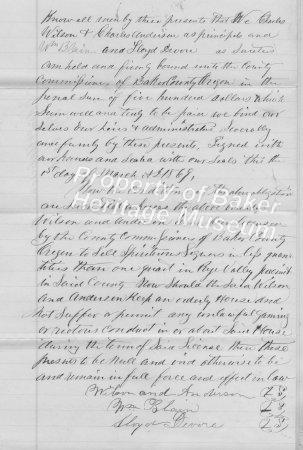 Know all men by these presents that We Charles
Wilson & Charles Anderson as principals and
Wm Elam and Lloyd Devore as Sureties
Are held and firmly bound unto the County
Commissioners of Baker County Oregon in the
penal Sum of five hundred dollars which
Sum well and truly to be paid we bind our
Selves Our heirs & administrators Severally
and firmly by these presents, Signed with
our hands and Sealed with our Seals this the
1st day of March AD 1869,
Now the Condition of the above obligation
are Such that whereas the above
Wilson and Anderson
by the County Commissioners of Baker County
Oregon to Sell Spirituous liquors in less quan
tities than one quart in the Valley precinct
in Said County Now Should the Said Wilson
and Anderson Keep an orderly House and
Not Suffer or permit any unlawful gaming
or riotous Conduct in or about Said House
during the term of Said License then these
presents to be Null and void otherwise to be
and remain in full force and effect in law
Wilson and Anderson L S,
Wm Elam L S,
Lloyd Devore L S,
Property of Baker
Heritage Museum